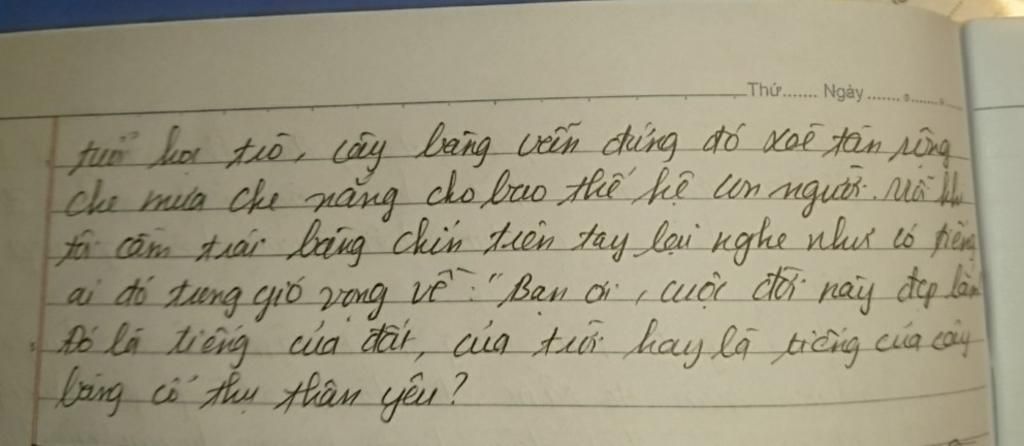 Thứ....... Ngày.............
tuổi học trò, cây bàng vẫn đứng đó xoè tán rộng
che mưa che nắng cho bao thế hệ con người. Mỗi khi
tôi cầm trái bàng chín trên tay lại nghe như có tiếng
ai đó trong gió vọng về: "Bạn ơi, cuộc đời này đẹp lắm"
Đó là tiếng của đất, của trời hay là tiếng của cây
bàng cổ thụ thân yêu?